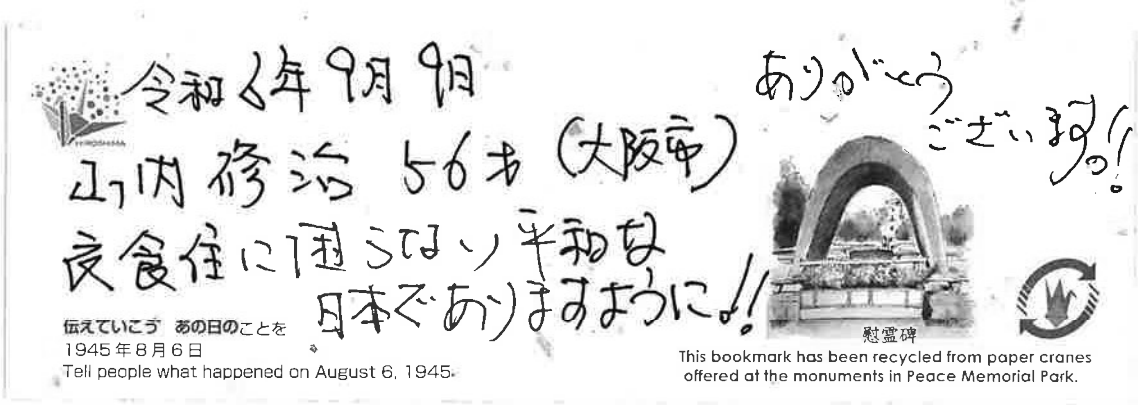 令和6年9月9日
ありがとう
ございます!!
HIROSHIMA
山内修治 56才 (大阪市)
衣食住に困らない平和な
日本でありますように!!
伝えていこう あの日のことを
1945年8月6日
Tell people what happened on August 6, 1945.
慰霊碑
This bookmark has been recycled from paper cranes
offered at the monuments in Peace Memorial Park.